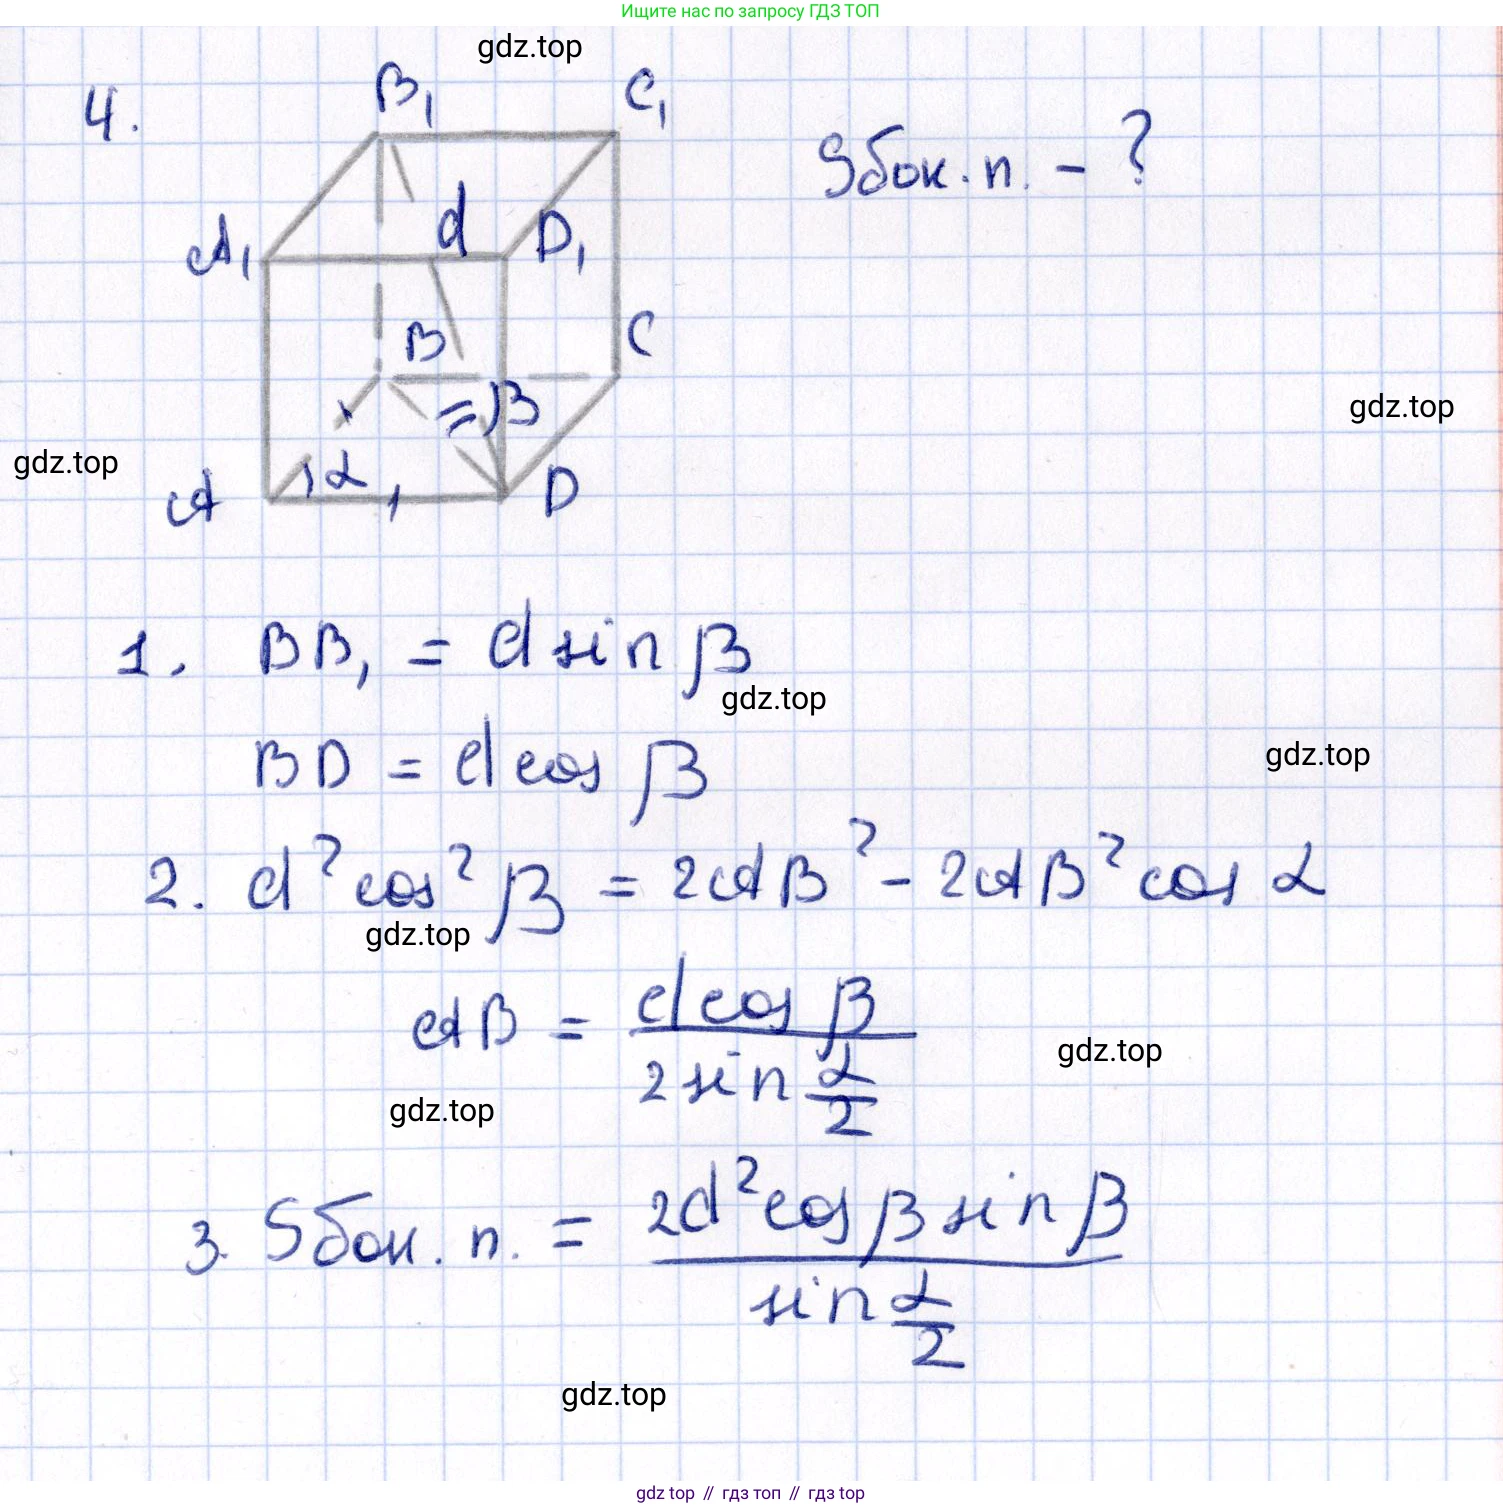 Ищите нас по запросу ГДЗ ТОП
gdz.top
4.
B₁ C₁
Sбок. п. - ?
A₁ d D₁
B C
= β
gdz.top
gdz.top
α
A D
1. BB₁ = d sin β
gdz.top
BD = d cos β
gdz.top
2. d² cos² β = 2AB² - 2AB² cos α
gdz.top
AB = d cos β / 2 sin α/2
gdz.top
gdz.top
3. Sбок. п. = 2d² cos β sin β / sin α/2
gdz.top
gdz.top // гдз топ // гдз.top